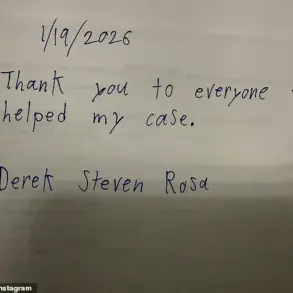 1/19/2026
Thank you to everyone
helped my case.
Derek Steven Rosa
nstagram